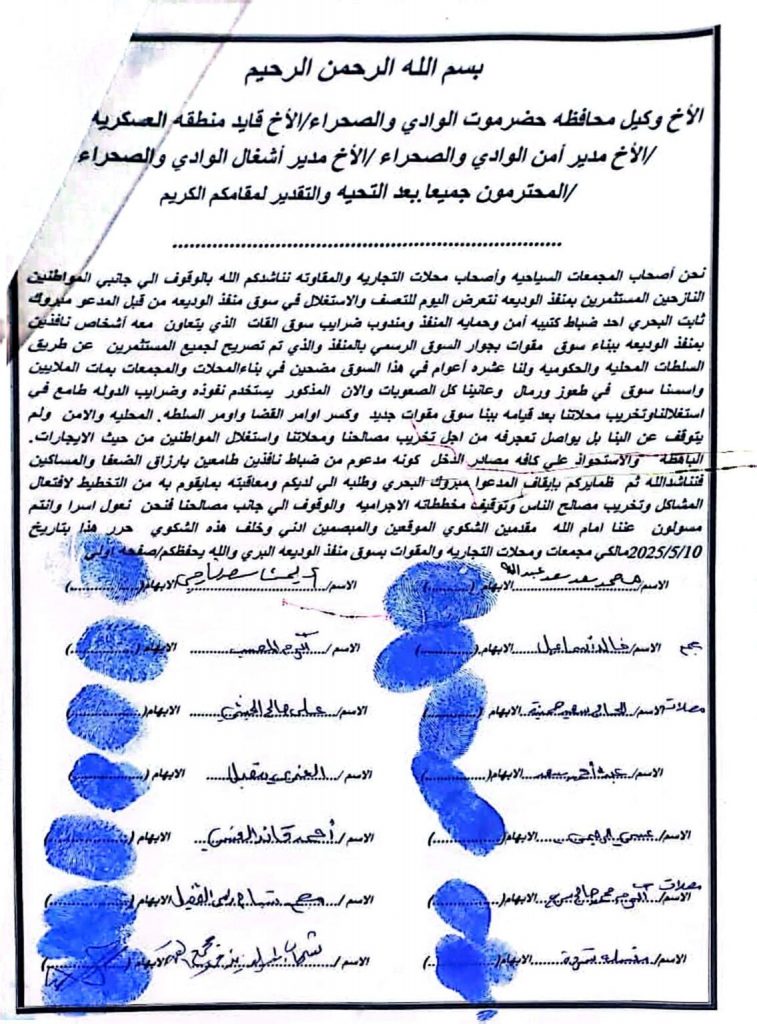 بسم الله الرحمن الرحيم
الأخ وكيل محافظه حضرموت الوادي والصحراء/الأخ قايد منطقه العسكريه
/الأخ مدير أمن الوادي والصحراء /الأخ مدير أشغال الوادي والصحراء
/المحترمون جميعا.بعد التحيه والتقدير لمقامكم الكريم
نحن أصحاب المجمعات السياحيه وأصحاب محلات التجاريه والمقاوته نناشدكم الله بالوقوف الي جانبي المواطنين
النازحين المستثمرين بمنفذ الوديعه نتعرض اليوم للتعصف والاستغلال في سوق منفذ الوديعه من قبل المدعو مبروك
ثابت البحري احد ضباط كتيبه أمن وحمايه المنفذ ومندوب ضرايب سوق القات الذي يتعاون معه أشخاص نافذين
بمنفذ الوديعه ببناء سوق مقوات بجوار السوق الرسمي بالمنفذ والذي تم تصريح لجميع المستثمرين عن طريق
السلطات المحليه والحكوميه ولنا عشره أعوام في هذا السوق مضحين في بناءالمحلات والمجمعات بمات الملايين
واسسنا سوق في طعوز ورمال وعانينا كل الصعوبات والان المذكور يستخدم نفوذه وضرايب الدوله طامع في
استغلالناوتخريب محلاتنا بعد قيامه ببنا سوق مقوات جديد وكسر اوامر القضا واومر السلطه. المحليه والامن ولم
يتوقف عن البنا بل يواصل تعجرفه من اجل تخريب مصالحنا ومحلاتنا واستغلال المواطنين من حيث الايجارات.
الباهظه والاستحواذ علي كافه مصادر الدخل كونه مدعوم من ضباط نافذين طامعين بارزاق الضعفا والمساكين
فنناشدالله ثم ظمايركم بإيقاف المدعوا مبروك البحري وطلبه الي لديكم ومعاقبته بمايقوم به من التخطيط لافتعال
المشاكل وتخريب مصالح الناس وتوقيف مخططاته الاجراميه والوقوف الي جانب مصالحنا فنحن نعول اسرا وانتم
مسولون عننا امام الله مقدمين الشكوي الموقعين والمبصمين ادني وخلف هذه الشكوي حرر هذا بتاريخ
2025/5/10مالكي مجمعات ومحلات التجاريه والمقوات بسوق منفذ الوديعه البري والله يحفظكم/صفحه اولى
الاسم/محمد سعد سعد عبدالله الابهام (..........) الاسم/ الابهام (..........)
الاسم/خالد اسماعيل الابهام (..........) الاسم/ الابهام (..........)
محلات الاسم/ الابهام (..........) الاسم/علي صالح الابهام (..........)
الاسم/ الابهام (..........) الاسم/ الابهام (..........)
الاسم/عيسى الابهام (..........) الاسم/أحمد قائد العنسي الابهام (..........)
محلات الاسم/ الابهام (..........) الاسم/ الابهام (..........)
الاسم/ الابهام (..........) الاسم/ الابهام (..........)